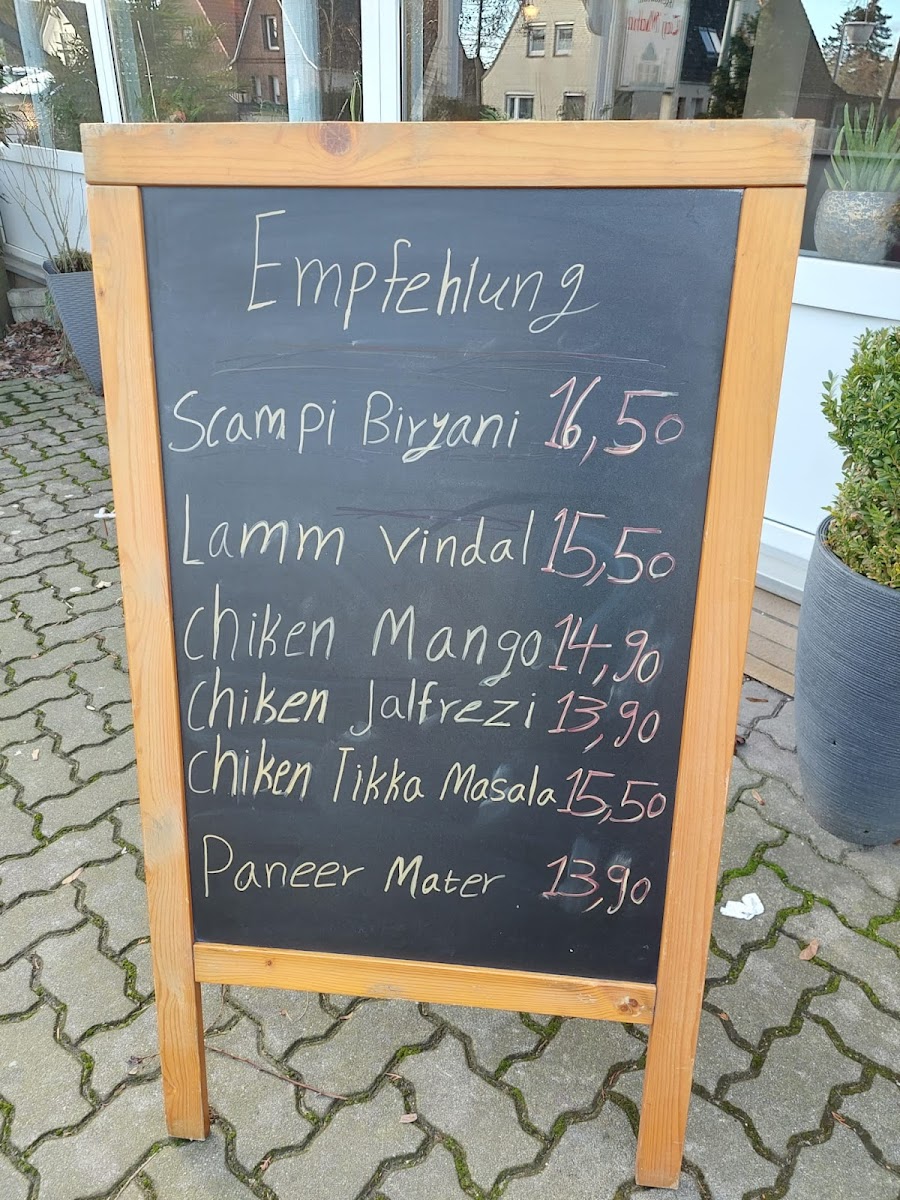 Empfehlung
Scampi Biryani 16,50
Lamm vindal 15,50
chiken Mango 14,90
chiken Jalfrezi 13,90
chiken Tikka Masala 15,50
Paneer Mater 13,90